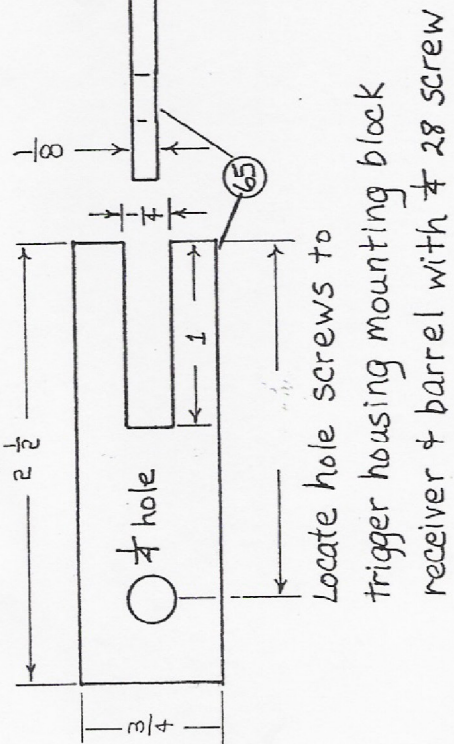 2 1/2
1/8
65
3/4
1/4 hole
1/4
1
Locate hole screws to
trigger housing mounting block
receiver & barrel with 1/4 28 screw